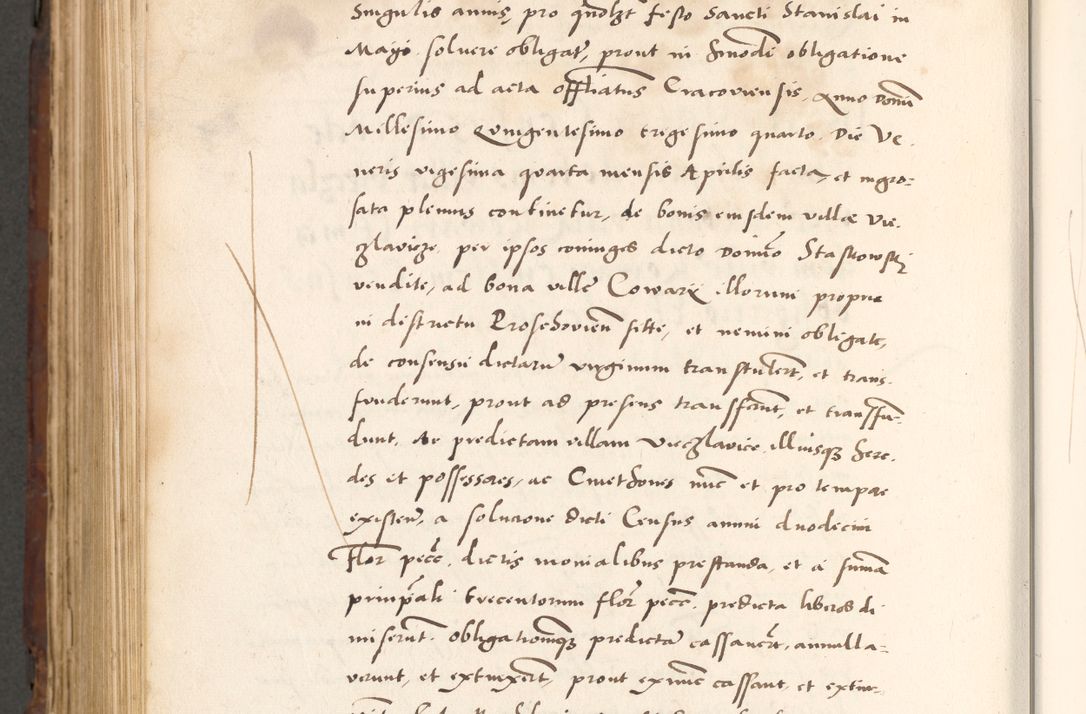 Singulis annis, pro quolzt festo Sancti Stanislai in
Mayo solvere obligat, prout in hmodi obligatione
superius ad acta offitiatus Cracoviensis, Anno domi
Millesimo Quingentesimo trigesimo quarto. Die Ve-
neris vigesima quarta mensis Aprilis facta, et ingro-
sata plenius continetur, de bonis eiusdem villæ Vie-
per ipsos coniuges dicto domino Staskowski
vendite, ad bona ville Cowary illorum propria
in districtu Proschovien sitte, et nemini obligate,
de consensu dictaru virginum transtulert, et trans-
fuderunt, prout ad presens transferunt, et transfu-
dunt. Ac predictam villam illiusq here-
des et possessores, ac Cmethones nunc et pro tempore
existen, a solucione dicti Census annui duodecim
flor pecc. dictis monialibus prestanda, et a suma
principali trecentorum flor pecc. predicta liberos di-
miserunt. obligationemq predictam cassavert, annulla-
verunt, et extinxert, prout ex nunc cassant, et extin-